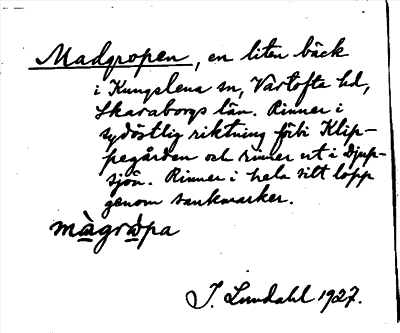 Madgropen, en liten bäck
i Kungslena sn, Vartofta hd,
Skaraborgs län. Rinner i
sydöstlig riktning förbi Klip-
pegården och rinner ut i Djup-
sjön. Rinner i hela sitt lopp
genom sankmarker.
màgrapa
J. Lundahl 1927.